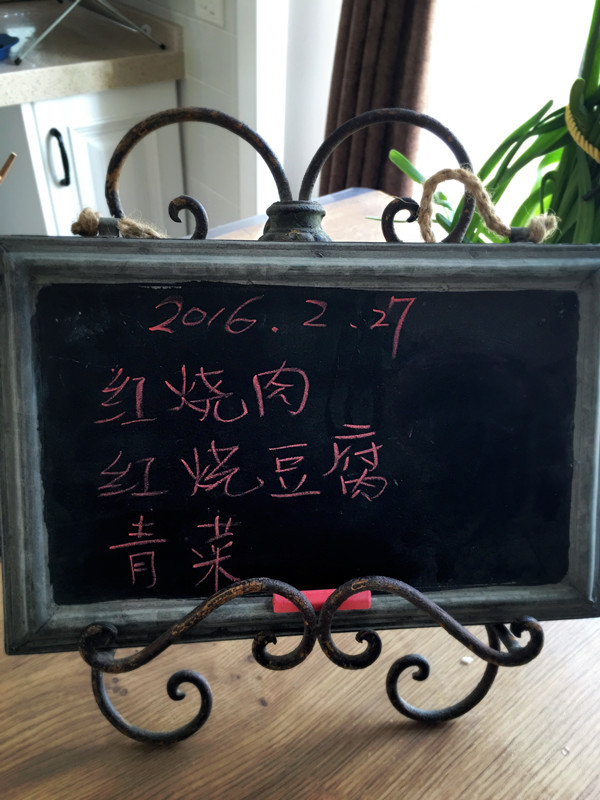 2016.2.27
红烧肉
红烧豆腐
青菜